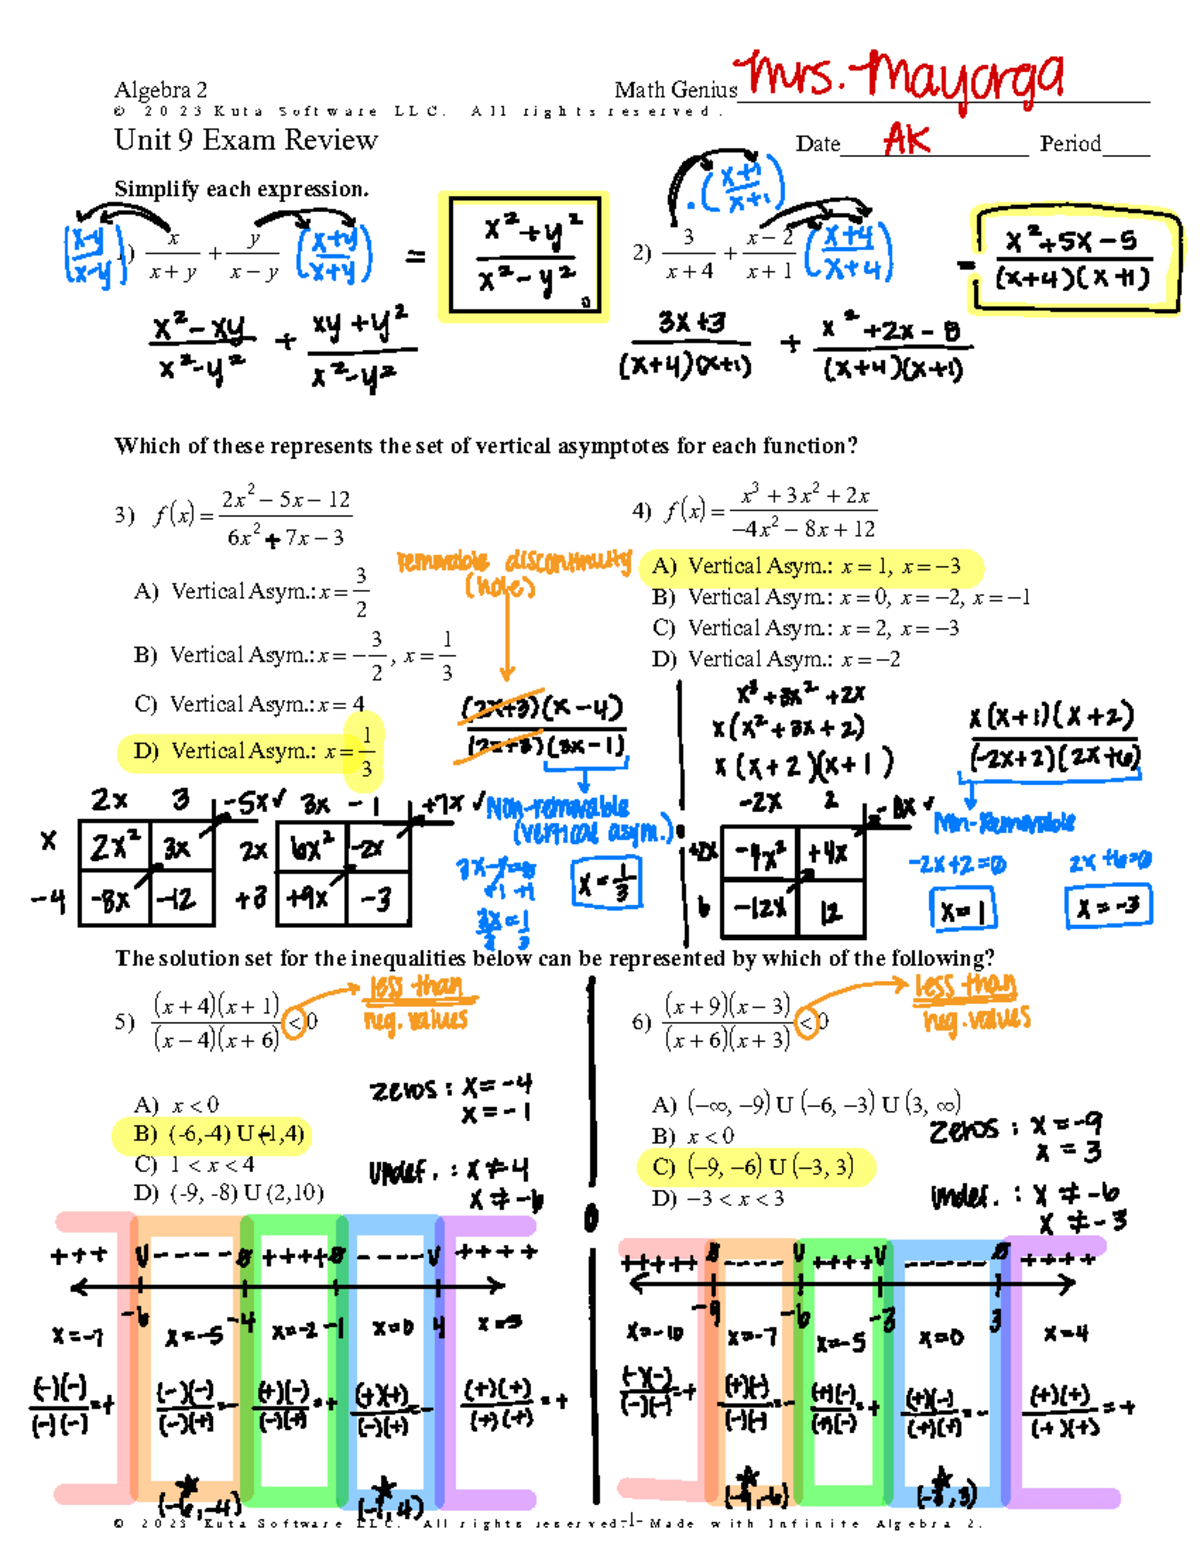 Algebra 2
Math Genius Mrs. Mayorga
© 2023 Kuta Software LLC. All rights reserved.
Unit 9 Exam Review
Date AK Period
Simplify each expression.
1) x/(x + y) + y/(x − y)
(x-y)/(x-y)
(x+y)/(x+y)
= (x²+y²)/(x²-y²)
(x²-xy)/(x²-y²) + (xy+y²)/(x²-y²)
2) 3/(x + 4) + (x − 2)/(x + 1)
·(x+1)/(x+1)
(x+4)/(x+4)
= (x²+5x-5)/((x+4)(x+1))
(3x+3)/((x+4)(x+1)) + (x²+2x-8)/((x+4)(x+1))
Which of these represents the set of vertical asymptotes for each function?
3) f(x) = (2x² − 5x − 12)/(6x² + 7x − 3)
A) Vertical Asym.: x = 3/2
B) Vertical Asym.: x = −3/2, x = 1/3
C) Vertical Asym.: x = 4
D) Vertical Asym.: x = 1/3
removable discontinuity
(hole)
(2x+3)(x-4)
(2x+3)(3x-1)
Non-removable
(vertical asym.)
3x-1=0
+1 +1
3x/3 = 1/3
x = 1/3
2x 3 -5x✓
x 2x² 3x
-4 -8x -12
3x -1 +7x✓
2x 6x² -2x
+3 +9x -3
4) f(x) = (x³ + 3x² + 2x)/(−4x² − 8x + 12)
A) Vertical Asym.: x = 1, x = −3
B) Vertical Asym.: x = 0, x = −2, x = −1
C) Vertical Asym.: x = 2, x = −3
D) Vertical Asym.: x = −2
x³+3x²+2x
x(x²+3x+2)
x(x+2)(x+1)
x(x+1)(x+2)
(-2x+2)(2x+6)
Non-Removable
-2x+2=0
x=1
2x+6=0
x=-3
-2x 2 -8x✓
+2x -4x² +4x
6 -12x 12
The solution set for the inequalities below can be represented by which of the following?
5) (x + 4)(x + 1)/((x − 4)(x + 6)) < 0
less than
neg. values
A) x < 0
B) (-6,-4) U (-1,4)
C) 1 < x < 4
D) (-9, -8) U (2,10)
zeros: x=-4
x=-1
undef.: x≠4
x≠-6
+++ U ---- 0 ++++ 0 ---- U ++++
-6 -4 -1 4
x=-7 x=-5 x=-2 x=0 x=5
(-)(-)/(-)(-) = + (-)(-)/(-)(+) = - (+)(-)/(-)(+) = + (+)(+)/(-)(+) = - (+)(+)/(+)(+) = +
(-6,-4) (-1,4)
6) (x + 9)(x − 3)/((x + 6)(x + 3)) < 0
less than
neg. values
A) (−∞, −9) U (−6, −3) U (3, ∞)
B) x < 0
C) (−9, −6) U (−3, 3)
D) −3 < x < 3
zeros: x=-9
x=3
undef.: x≠-6
x≠-3
+++++ 0 ---- U ++++ U ----- 0 ++++
-9 -6 -3 3
x=-10 x=-7 x=-5 x=0 x=4
(-)(-)/(-)(-) = + (+)(-)/(-)(-) = - (+)(-)/(+)(-) = + (+)(-)/(+)(+) = - (+)(+)/(+)(+) = +
(-9,-6) (-3,3)
© 2023 Kuta Software LLC. All rights reserved. -1- Made with Infinite Algebra 2.